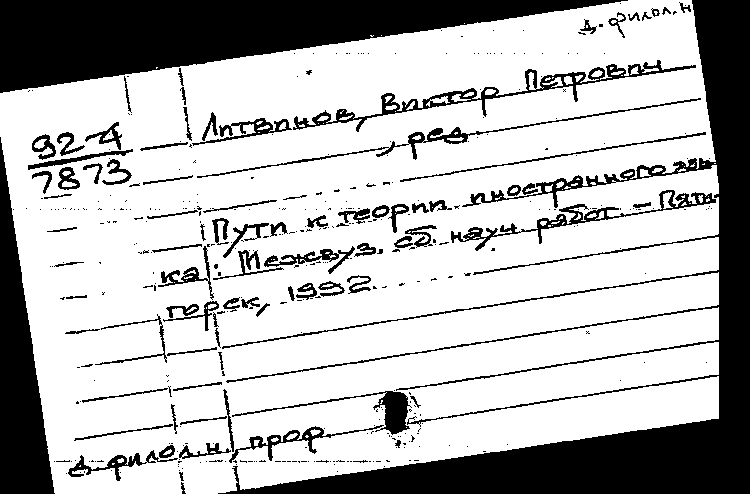 д. филол. н
92-4
7873
Литвинов, Виктор Петрович
, ред.
Пути к теории иностранного язы-
ка : Межвуз. сб. науч работ. - Пяти-
горск, 1992.
д. филол. н., проф.